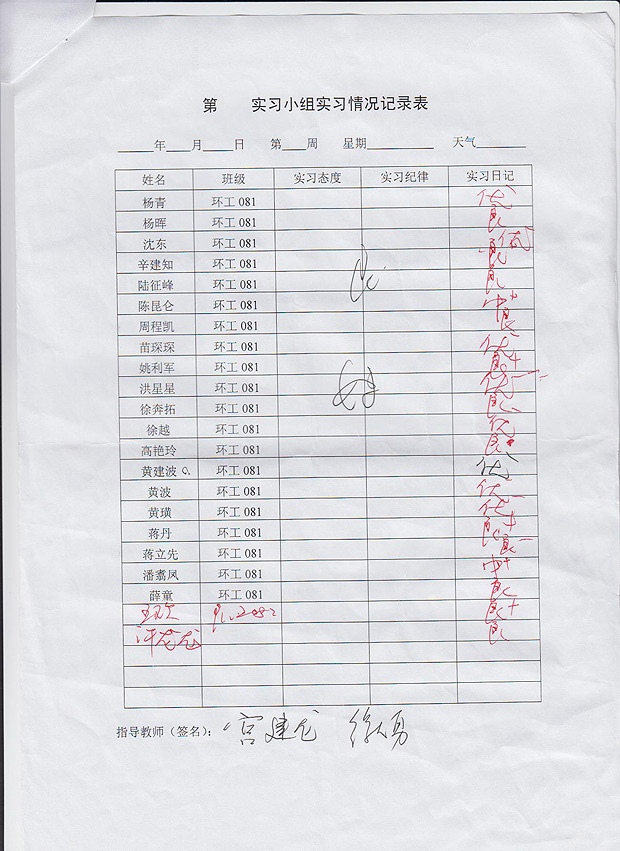 第 实习小组实习情况记录表
年 月 日 第 周 星期 天气
姓名 班级 实习态度 实习纪律 实习日记
杨青 环工 081 优
杨晖 环工 081 良
沈东 环工 081
辛建知 环工 081 良
陆征峰 环工 081
陈昆仑 环工 081 中+
周程凯 环工 081 良
苗琛琛 环工 081 优
姚利军 环工 081 良+
洪星星 环工 081 优
徐奔拓 环工 081 良
徐越 环工 081 优
高艳玲 环工 081 良
黄建波 环工 081 优
黄波 环工 081 优-
黄璜 环工 081 优
蒋丹 环工 081 良+
蒋立先 环工 081 良-
潘翥凤 环工 081 中+
薛童 环工 081 良
良+
许龙龙 良
指导教师（签名）： 宫建龙 徐勇